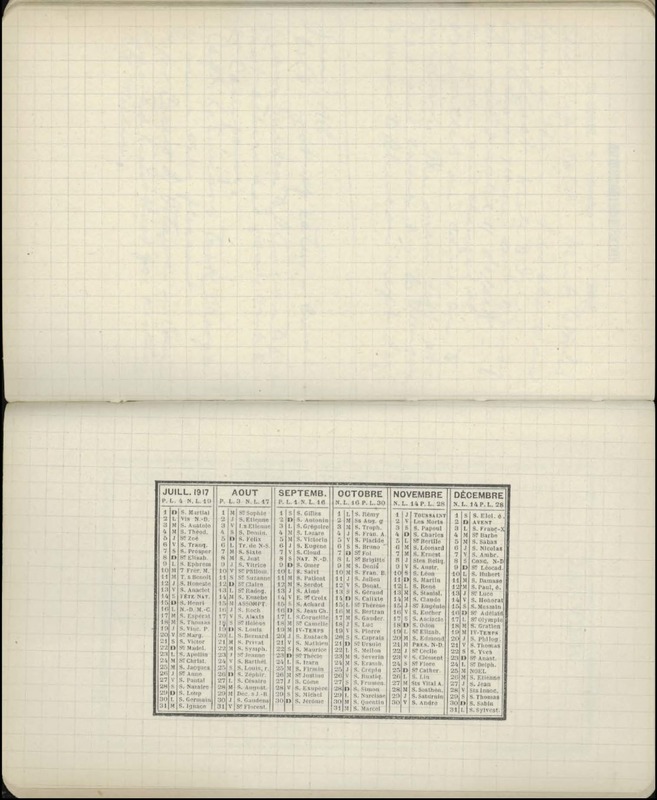 JUILL. 1917
P. L. 4 N. L. 19
1 D S. Martial
2 L Vis N.-D.
3 M S. Anatole
4 M S. Théod.
5 J Ste Zoé
6 V S. Tranq.
7 S S. Prosper
8 D Ste Elisab.
9 L S. Ephrem
10 M 7 Frèr. M.
11 M T. s Benoît
12 J S. Honeste
13 V S. Anaclet
14 S FÊTE NAT.
15 D S. Henri
16 L N.-D. M.-C.
17 M S. Espérat
18 M S. Thomas
19 J S. Vinc. P.
20 V Ste Marg.
21 S S. Victor
22 D Ste Madel.
23 L S. Apollin
24 M Ste Christ.
25 M S. Jacques
26 J Ste Anne
27 V S. Pantal
28 S S. Nazaire
29 D S. Loup
30 L S. Germain
31 M S. Ignace
AOUT
P. L. 3 N. L. 17
1 M Ste Sophie
2 J S. Etienne
3 V I. s Etienne
4 S S. Domin.
5 D S. Félix
6 L Tr. de N-S.
7 M S. Sixte
8 M S. Just
9 J S. Vitrice
10 V Ste Philom.
11 S Ste Suzanne
12 D Ste Claire
13 L Ste Radeg.
14 M S. Eusèbe
15 M ASSOMPT.
16 J S. Roch
17 V S. Alexis
18 S Ste Hélène
19 D S. Louis
20 L S. Bernard
21 M S. Privat
22 M S. Symph.
23 J Ste Jeanne
24 V S. Barthél.
25 S S. Louis, r.
26 D S. Zéphir.
27 L S. Césaire
28 M S. August.
29 M Déc. s J.-B.
30 J S. Gaudens
31 V Ste Florent.
SEPTEMB.
P. L. 1 N. L. 16
1 S S. Gilles
2 D S. Antonin
3 L S. Grégoire
4 M S. Lazare
5 M S. Victorin
6 J S. Eugène
7 V S. Cloud
8 S NAT. N.-D.
9 D S. Omer
10 L S. Salvi
11 M S. Patient
12 M S. Serdot
13 J S. Aimé
14 V E. Ste Croix
15 S S. Achard
16 D S. Jean Ch.
17 L S. Corneille
18 M Ste Camelle
19 M IV-TEMPS
20 J S. Eustach
21 V S. Mathieu
22 S S. Maurice
23 D Ste Thècle
24 L S. Izarn
25 M S. Firmin
26 M Ste Justine
27 J S. Côme
28 V S. Exupère
29 S S. Michel
30 D S. Jérôme
OCTOBRE
N. L. 16 P. L. 30
1 L S. Rémy
2 M Ss Ang. g
3 M S. Troph.
4 J S. Fran. A.
5 V S. Placide
6 S S. Bruno
7 D Ste Foi
8 L Ste Brigitte
9 M S. Denis
10 M S. Fran. B.
11 J S. Julien
12 V S. Donat.
13 S S. Géraud
14 D S. Calixte
15 L Ste Thérèse
16 M S. Bertran
17 M S. Gauder.
18 J S. Luc
19 V S. Pierre
20 S S. Caprais
21 D Ste Ursule
22 L S. Mellon
23 M S. Séverin
24 M S. Erambi.
25 J S. Crépin
26 V S. Rustiq.
27 S S. Fronton
28 D S. Simon
29 L S. Narcisse
30 M S. Quentin
31 M S. Marcel
NOVEMBRE
N. L. 14 P. L. 28
1 J TOUSSAINT
2 V Les Morts
3 S S. Papoul
4 D S. Charles
5 L Ste Bertille
6 M S. Léonard
7 M S. Ernest
8 J Stes Reliq.
9 V S. Austr.
10 S S. Léon
11 D S. Martin
12 L S. René
13 M S. Stanisl.
14 M S. Claude
15 J Ste Eugénie
16 V S. Eucher
17 S S. Asciscle
18 D S. Odon
19 L Ste Elisab.
20 M S. Edmond
21 M PRES. N.-D.
22 J Ste Cécile
23 V S. Clément
24 S Ste Flore
25 D Ste Cather.
26 L S. Lin
27 M Sts Vital A.
28 M S. Sosthèn.
29 J S. Saturnin
30 V S. André
DÉCEMBRE
N. L. 14 P. L. 28
1 S S. Eloi, é.
2 D AVENT
3 L S. Franç-X
4 M Ste Barbe
5 M S. Sabas
6 J S. Nicolas
7 V S. Ambr.
8 S CONC. N-D
9 D Ste Léocad.
10 L S. Hubert
11 M S. Damase
12 M S. Paul, é.
13 J Ste Luce
14 V S. Honorat
15 S S. Maxmin
16 D Ste Adélaïd
17 L Ste Olympia
18 M S. Gratien
19 M IV-TEMPS
20 J S. Philog.
21 V S. Thomas
22 S S. Yves
23 D Ste Anast.
24 L S. Delph.
25 M NOEL
26 M S. Etienne
27 J S. Jean
28 V Sts Innoc.
29 S S. Thomas
30 D S. Sabin
31 L S. Sylvest.